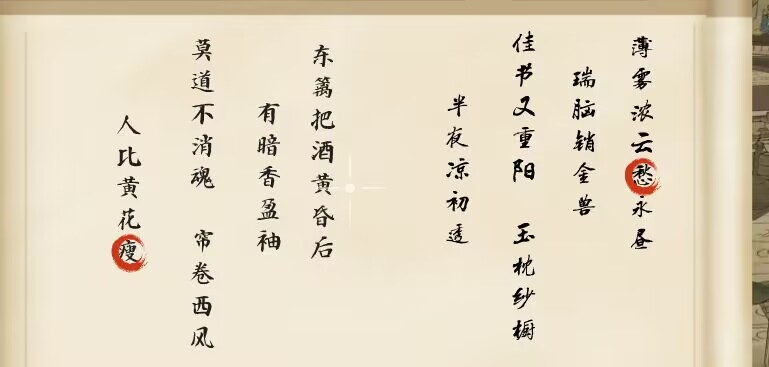 薄雾浓云愁永昼
瑞脑销金兽
佳书又重阳 玉枕纱橱
半夜凉初透
东篱把酒黄昏后
有暗香盈袖
莫道不消魂 帘卷西风
人比黄花瘦